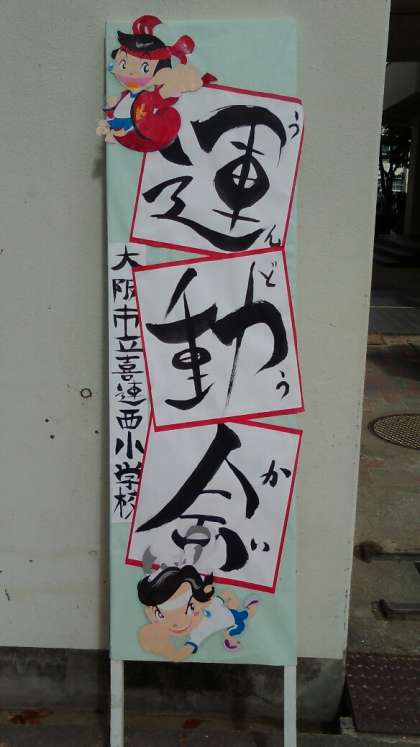 運動会
うんどうかい
大阪市立喜連西小学校